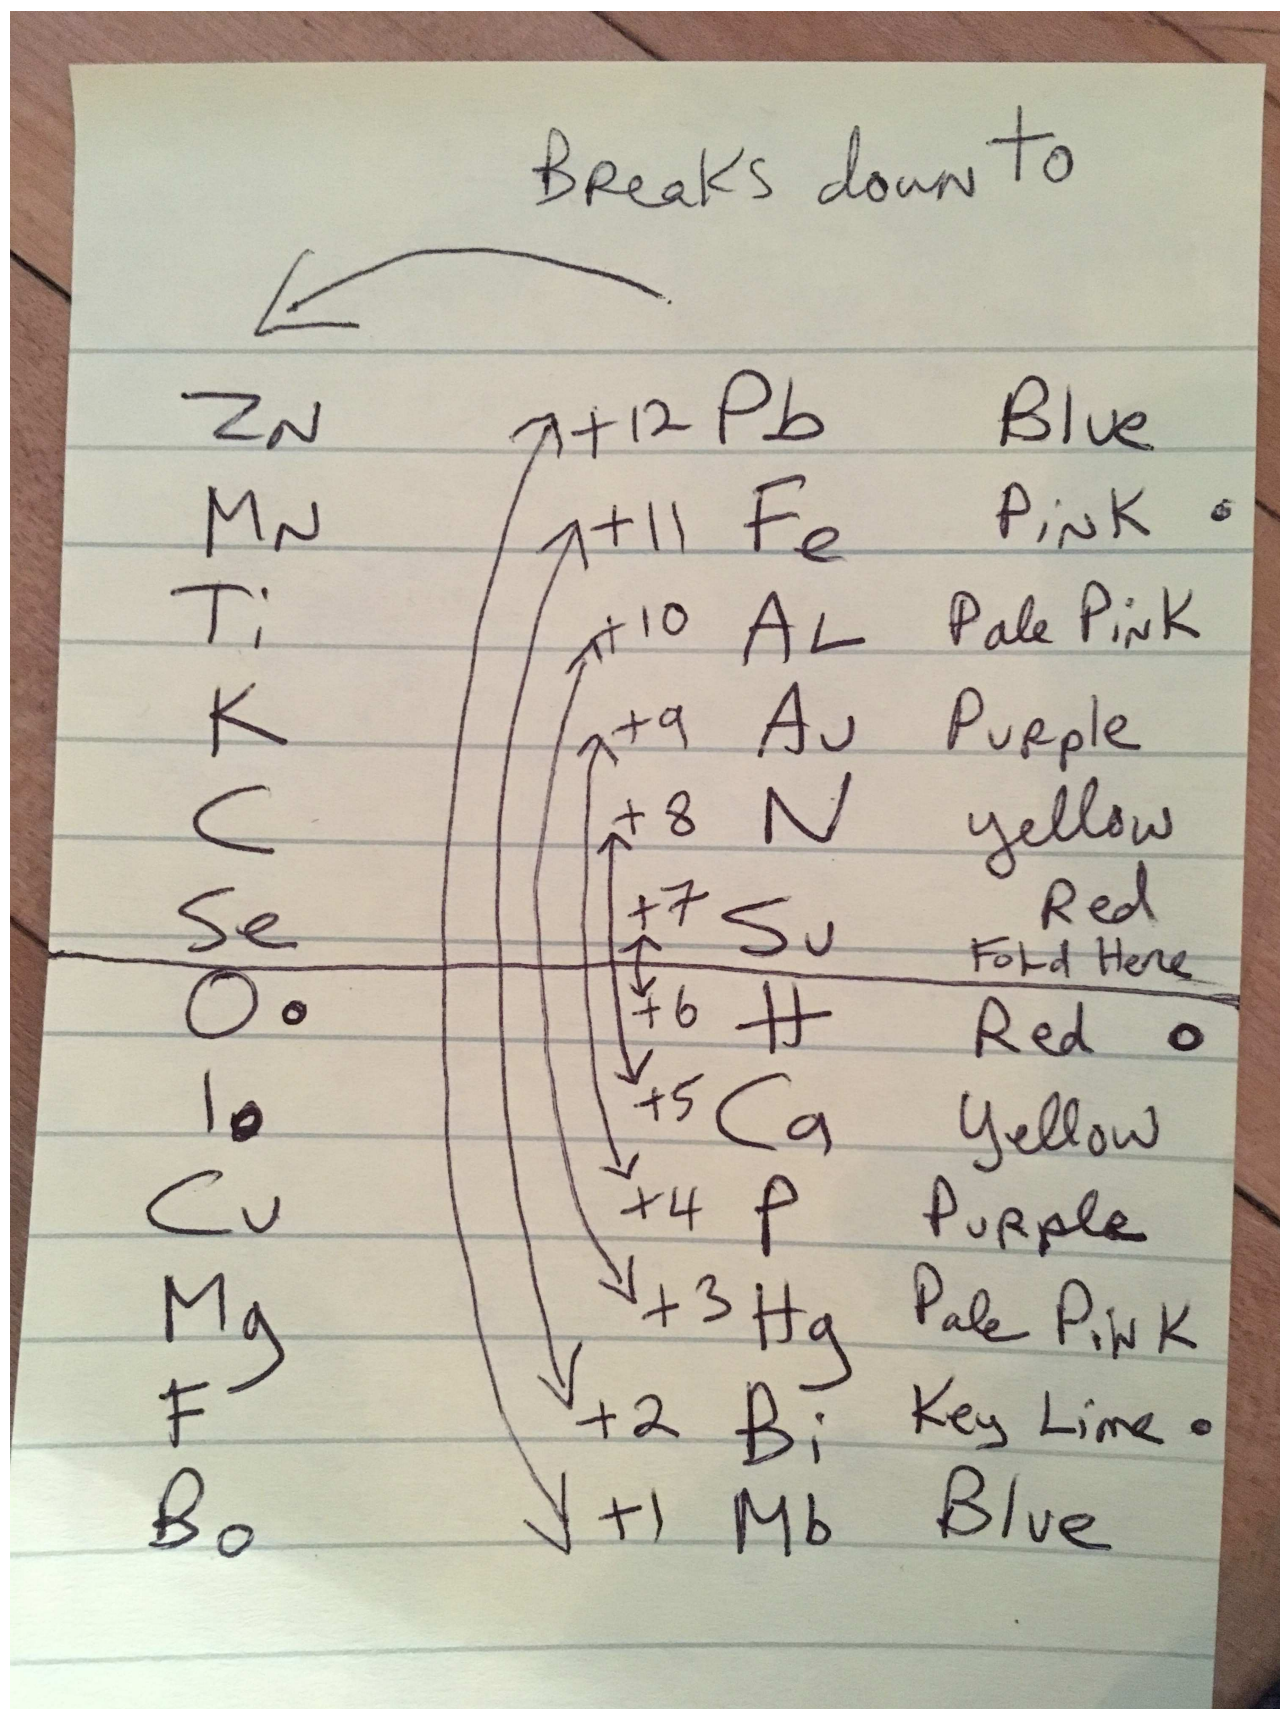 Breaks down to
Zn +12 Pb Blue
Mn +11 Fe Pink •
Ti +10 AL Pale Pink
K +9 Au Purple
C +8 N yellow
Se +7 Su Red
Fold Here
O • +6 H Red •
I • +5 Ca Yellow
Cu +4 P Purple
Mg +3 Hg Pale Pink
F +2 Bi Key Lime •
Bo +1 Mb Blue